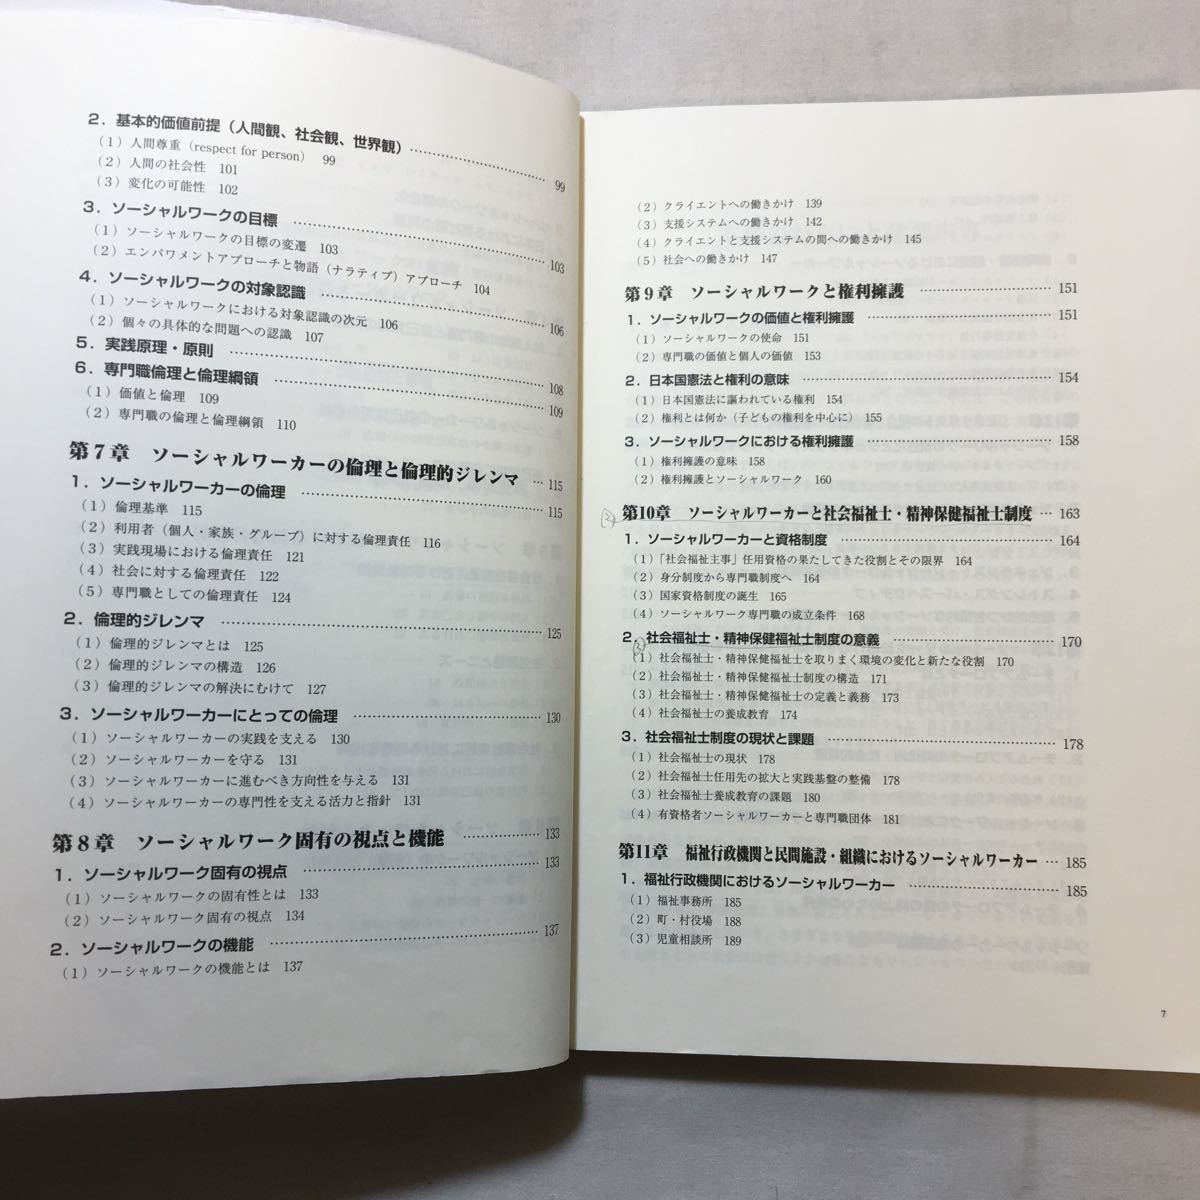 2．基本的価値前提（人間観、社会観、世界観）…………………… 99
（1）人間尊重（respect for person） 99
（2）人間の社会性 101
（3）変化の可能性 102
3．ソーシャルワークの目標 …………………… 103
（1）ソーシャルワークの目標の変遷 103
（2）エンパワメントアプローチと物語（ナラティブ）アプローチ 104
4．ソーシャルワークの対象認識 …………………… 106
（1）ソーシャルワークにおける対象認識の次元 106
（2）個々の具体的な問題への認識 107
5．実践原理・原則 …………………… 108
6．専門職倫理と倫理綱領 …………………… 109
（1）価値と倫理 109
（2）専門職の倫理と倫理綱領 110
第7章 ソーシャルワーカーの倫理と倫理的ジレンマ … 115
1．ソーシャルワーカーの倫理 …………………… 115
（1）倫理基準 115
（2）利用者（個人・家族・グループ）に対する倫理責任 116
（3）実践現場における倫理責任 121
（4）社会に対する倫理責任 122
（5）専門職としての倫理責任 124
2．倫理的ジレンマ …………………… 125
（1）倫理的ジレンマとは 125
（2）倫理的ジレンマの構造 126
（3）倫理的ジレンマの解決にむけて 127
3．ソーシャルワーカーにとっての倫理 …………………… 130
（1）ソーシャルワーカーの実践を支える 130
（2）ソーシャルワーカーを守る 131
（3）ソーシャルワーカーに進むべき方向性を与える 131
（4）ソーシャルワーカーの専門性を支える活力と指針 131
第8章 ソーシャルワーク固有の視点と機能 ………… 133
1．ソーシャルワーク固有の視点 …………………… 133
（1）ソーシャルワークの固有性とは 133
（2）ソーシャルワーク固有の視点 134
2．ソーシャルワークの機能 …………………… 137
（1）ソーシャルワークの機能とは 137
（2）クライエントへの働きかけ 139
（3）支援システムへの働きかけ 142
（4）クライエントと支援システムの間への働きかけ 145
（5）社会への働きかけ 147
第9章 ソーシャルワークと権利擁護 …………………… 151
1．ソーシャルワークの価値と権利擁護 …………………… 151
（1）ソーシャルワークの使命 151
（2）専門職の価値と個人の価値 153
2．日本国憲法と権利の意味 …………………… 154
（1）日本国憲法に謳われている権利 154
（2）権利とは何か（子どもの権利を中心に） 155
3．ソーシャルワークにおける権利擁護 …………………… 158
（1）権利擁護の意味 158
（2）権利擁護とソーシャルワーク 160
第10章 ソーシャルワーカーと社会福祉士・精神保健福祉士制度 … 163
1．ソーシャルワーカーと資格制度 …………………… 164
（1）「社会福祉主事」任用資格の果たしてきた役割とその限界 164
（2）身分制度から専門職制度へ 164
（3）国家資格制度の誕生 165
（4）ソーシャルワーク専門職の成立条件 168
2．社会福祉士・精神保健福祉士制度の意義 …………………… 170
（1）社会福祉士・精神保健福祉士を取りまく環境の変化と新たな役割 170
（2）社会福祉士・精神保健福祉士制度の構造 171
（3）社会福祉士・精神保健福祉士の定義と義務 173
（4）社会福祉士の養成教育 174
3．社会福祉士制度の現状と課題 …………………… 178
（1）社会福祉士の現状 178
（2）社会福祉士任用先の拡大と実践基盤の整備 178
（3）社会福祉士養成教育の課題 180
（4）有資格者ソーシャルワーカーと専門職団体 181
第11章 福祉行政機関と民間施設・組織におけるソーシャルワーカー … 185
1．福祉行政機関におけるソーシャルワーカー …………………… 185
（1）福祉事務所 185
（2）町・村役場 188
（3）児童相談所 189
7